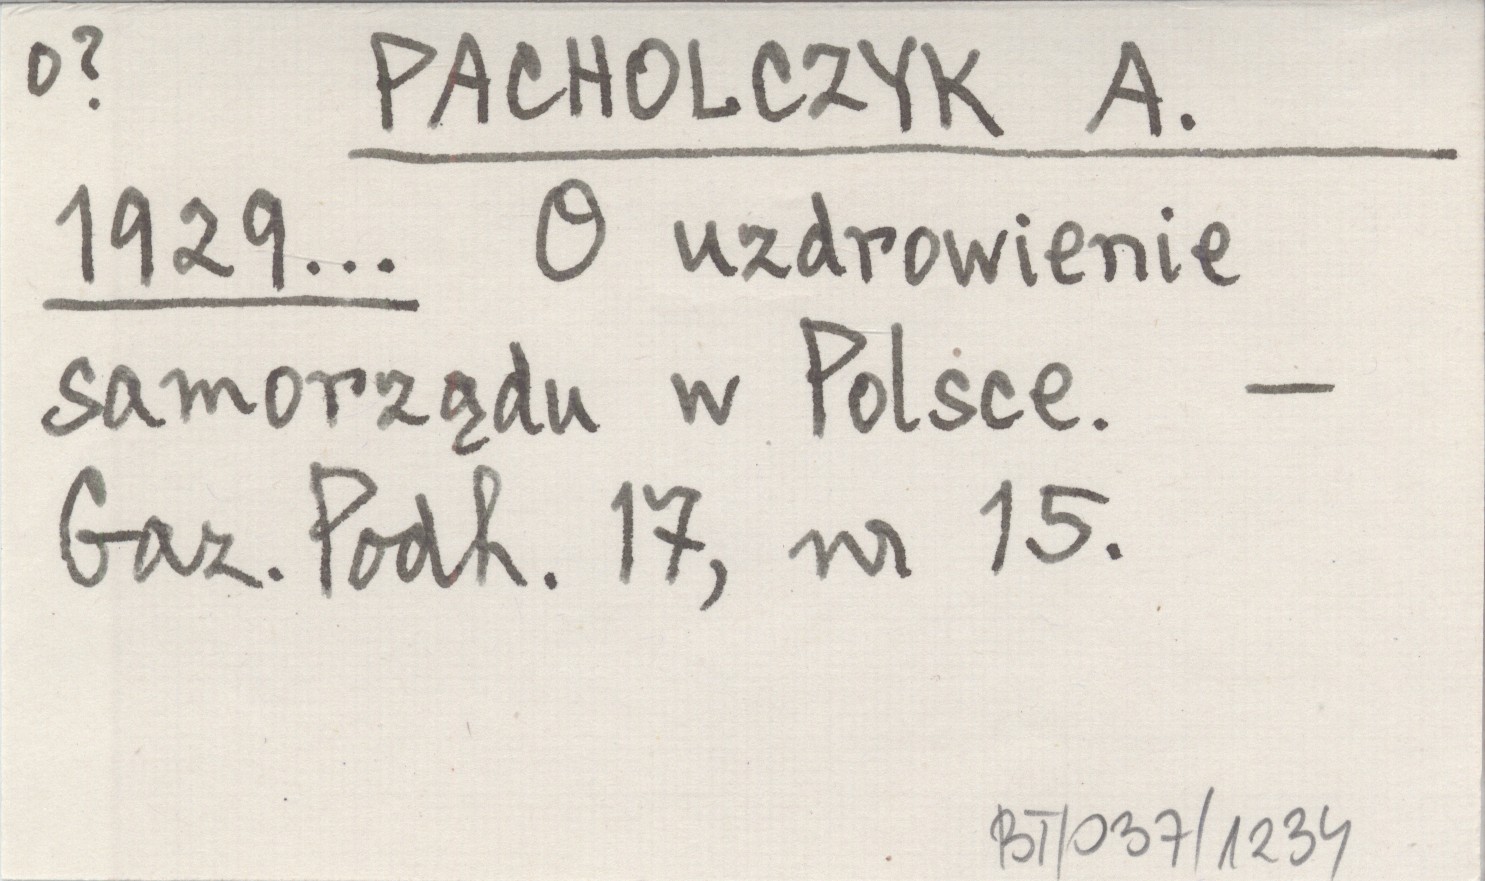 o?
PACHOLCZYK A.
1929... O uzdrowienie
samorządu w Polsce. —
Gaz. Podh. 17, nr 15.
BT/037/1234